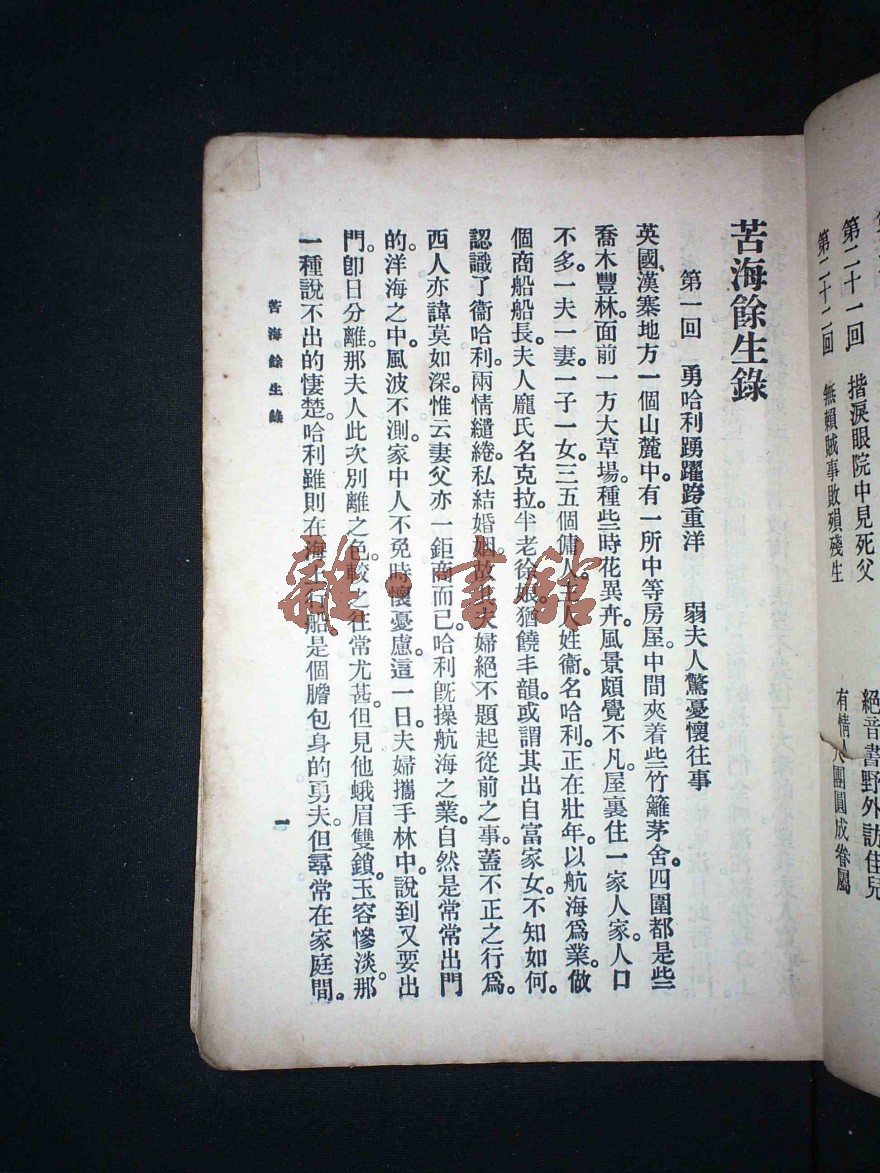 第二十一回　揩淚眼院中見死父　絕音書野外訪佳兒
第二十二回　無賴賊事敗殞殘生　有情人團圓成眷屬
苦海餘生錄
第一回　勇哈利踴躍跨重洋　弱夫人驚憂懷往事
英國、漢寨地方一個山麓中。有一所中等房屋。中間夾着些竹籬茅舍。四圍都是些
喬木豐林。面前一方大草場。種些時花異卉。風景頗覺不凡。屋裏住一家人家。人口
不多。一夫一妻。一子一女。三五個傭人。主人姓衞。名哈利。正在壯年。以航海爲業。做
個商船船長。夫人龐氏名克拉。半老徐娘。猶饒丰韻。或謂其出自富家女。不知如何。
認識了衞哈利。兩情繾綣。私結婚姻。故也夫婦絕不題起從前之事。蓋不正之行爲。
西人亦諱莫如深。惟云妻父亦一鉅商而已。哈利旣操航海之業。自然是常常出門
的。洋海之中。風波不測。家中人不免時懷憂慮。這一日夫婦攜手林中。說到又要出
門。卽日分離。那夫人此次別離之色。較之往常尤甚。但見他蛾眉雙鎖。玉容慘淡。那
一種說不出的悽楚。哈利雖則在海上行船。是個膽包身的勇夫。但尋常在家庭間。
苦海餘生錄
一
雜·書館